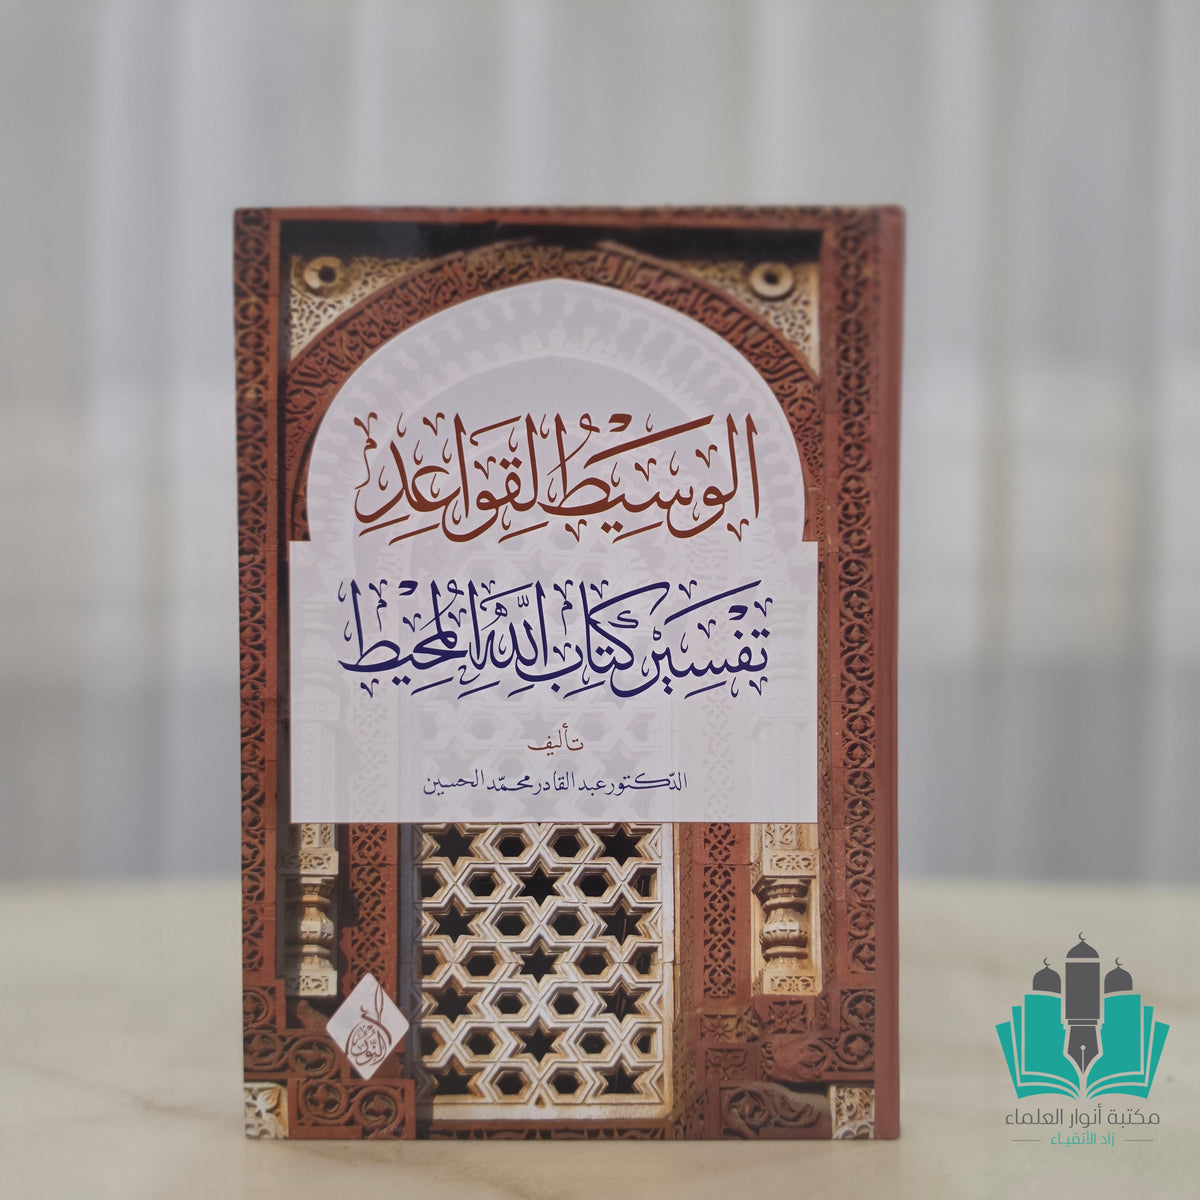 الوَسِيْطُ لِقَوَاعِدِ
تَفْسِيْرِ كِتَابِ اللّٰهِ المُحِيْطِ
تأليف
الدّكتور عبد القادر محمّد الحسين
النور
مكتبة أنوار العلماء
زاد الأتقياء